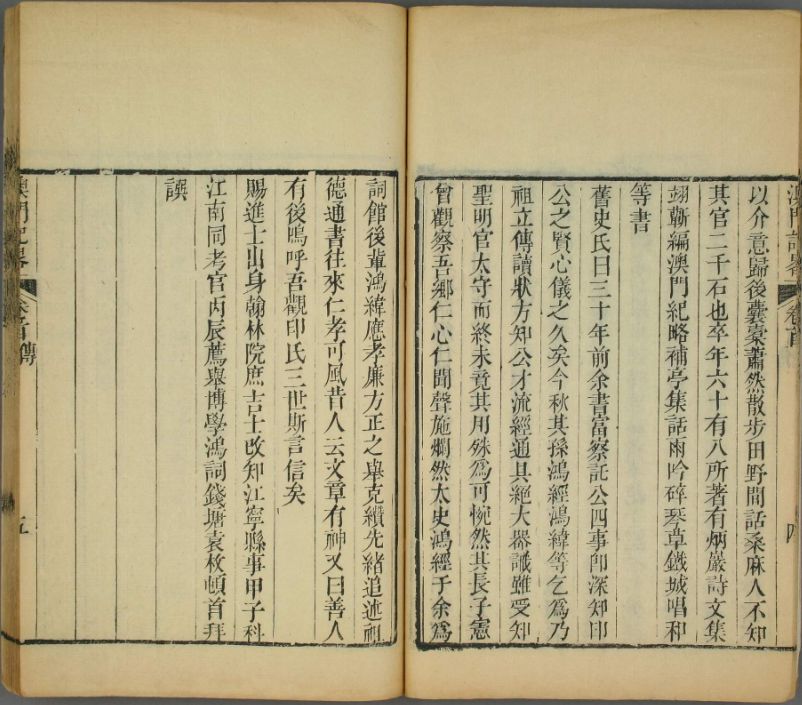 以介意歸後囊橐蕭然散步田野間話桑麻人不知
其官二千石也卒年六十有八所著有炳巖詩文集
翊蘄編澳門紀略補亭集話雨吟碎琴草鐵城唱和
等書
舊史氏曰三十年前余書富察託公四事卽深知印
公之賢心儀之久矣今秋其孫鴻經鴻緯等乞爲乃
祖立傳讀狀方知公才流經通具絕大器識雖受知
聖明官太守而終未竟其用殊爲可惋然其長子憲
曾觀察吾鄉仁心仁聞聲施爛然太史鴻經于余爲
詞館後輩鴻緯應孝廉方正之舉克纘先緒追述祖
德通書往來仁孝可風昔人云文章有神又曰善人
有後嗚呼吾觀印氏三世斯言信矣
賜進士出身翰林院庶吉士改知江寧縣事甲子科
江南同考官丙辰薦舉博學鴻詞錢塘袁枚頓首拜
譔
澳門記畧
卷首
四
澳門記畧
卷首傳
五